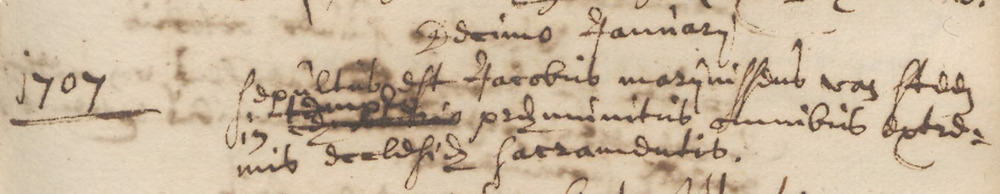 Decimo Januarij
1707 sepultus est Jacobus marijnissens van steen
præmunitus omnibus extre-
mis ecclesiæ sacramentis.